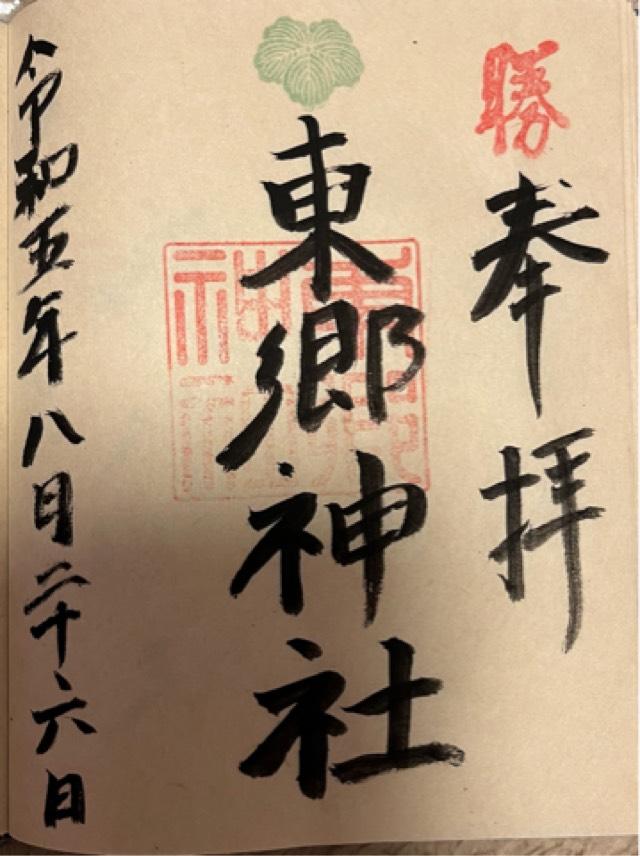 勝
奉拝
東郷神社
東郷神社
令和五年八月二十六日